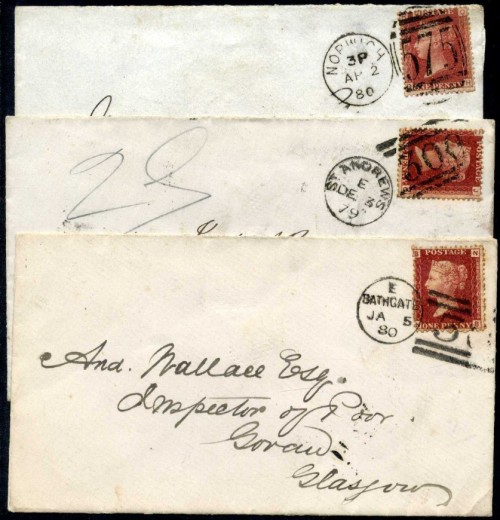 NORWICH
3P
AP 2
80
575
ONE PENNY
ST ANDREWS
E
DE 3
79
POSTAGE
E
BATHGATE
JA 5
80
ONE PENNY
And. Wallace Esq.
Inspector of Poor
Govan
Glasgow